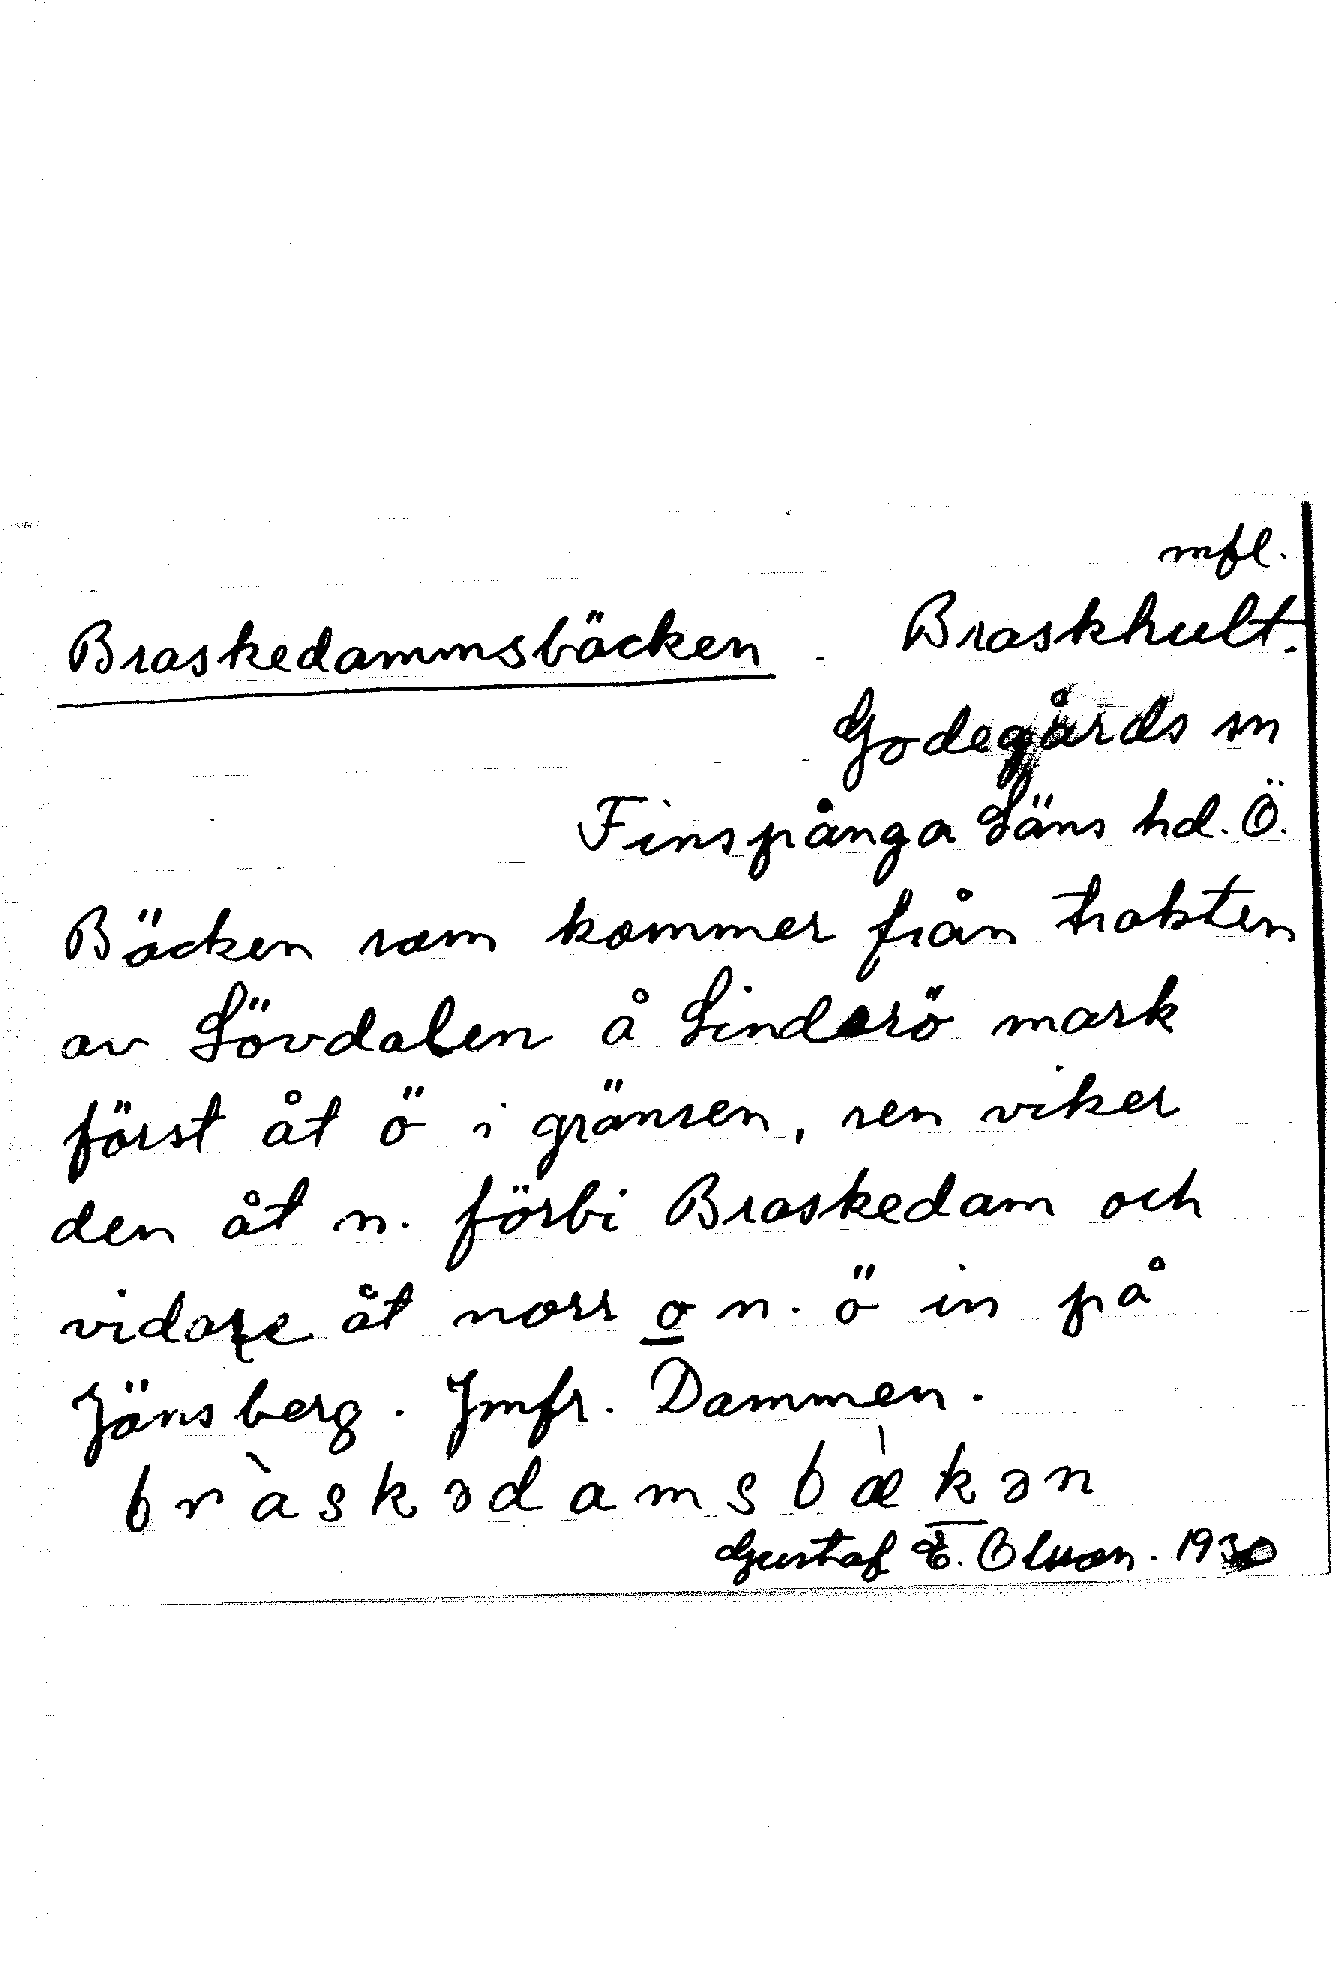 mfl.
Braskedammsbäcken. Braskhult.
Godegårds sn
Finspånga Läns hd. Ö.
Bäcken som kommer från trakten
av Lövdalen å Linderö mark
först åt ö i gränsen, sen viker
den åt n. förbi Braskedam och
vidare åt norr o n. ö in på
Jänsberg. Jmfr. Dammen.
bràskədamsbæ̀kən
Gustaf E. Olsson. 1930